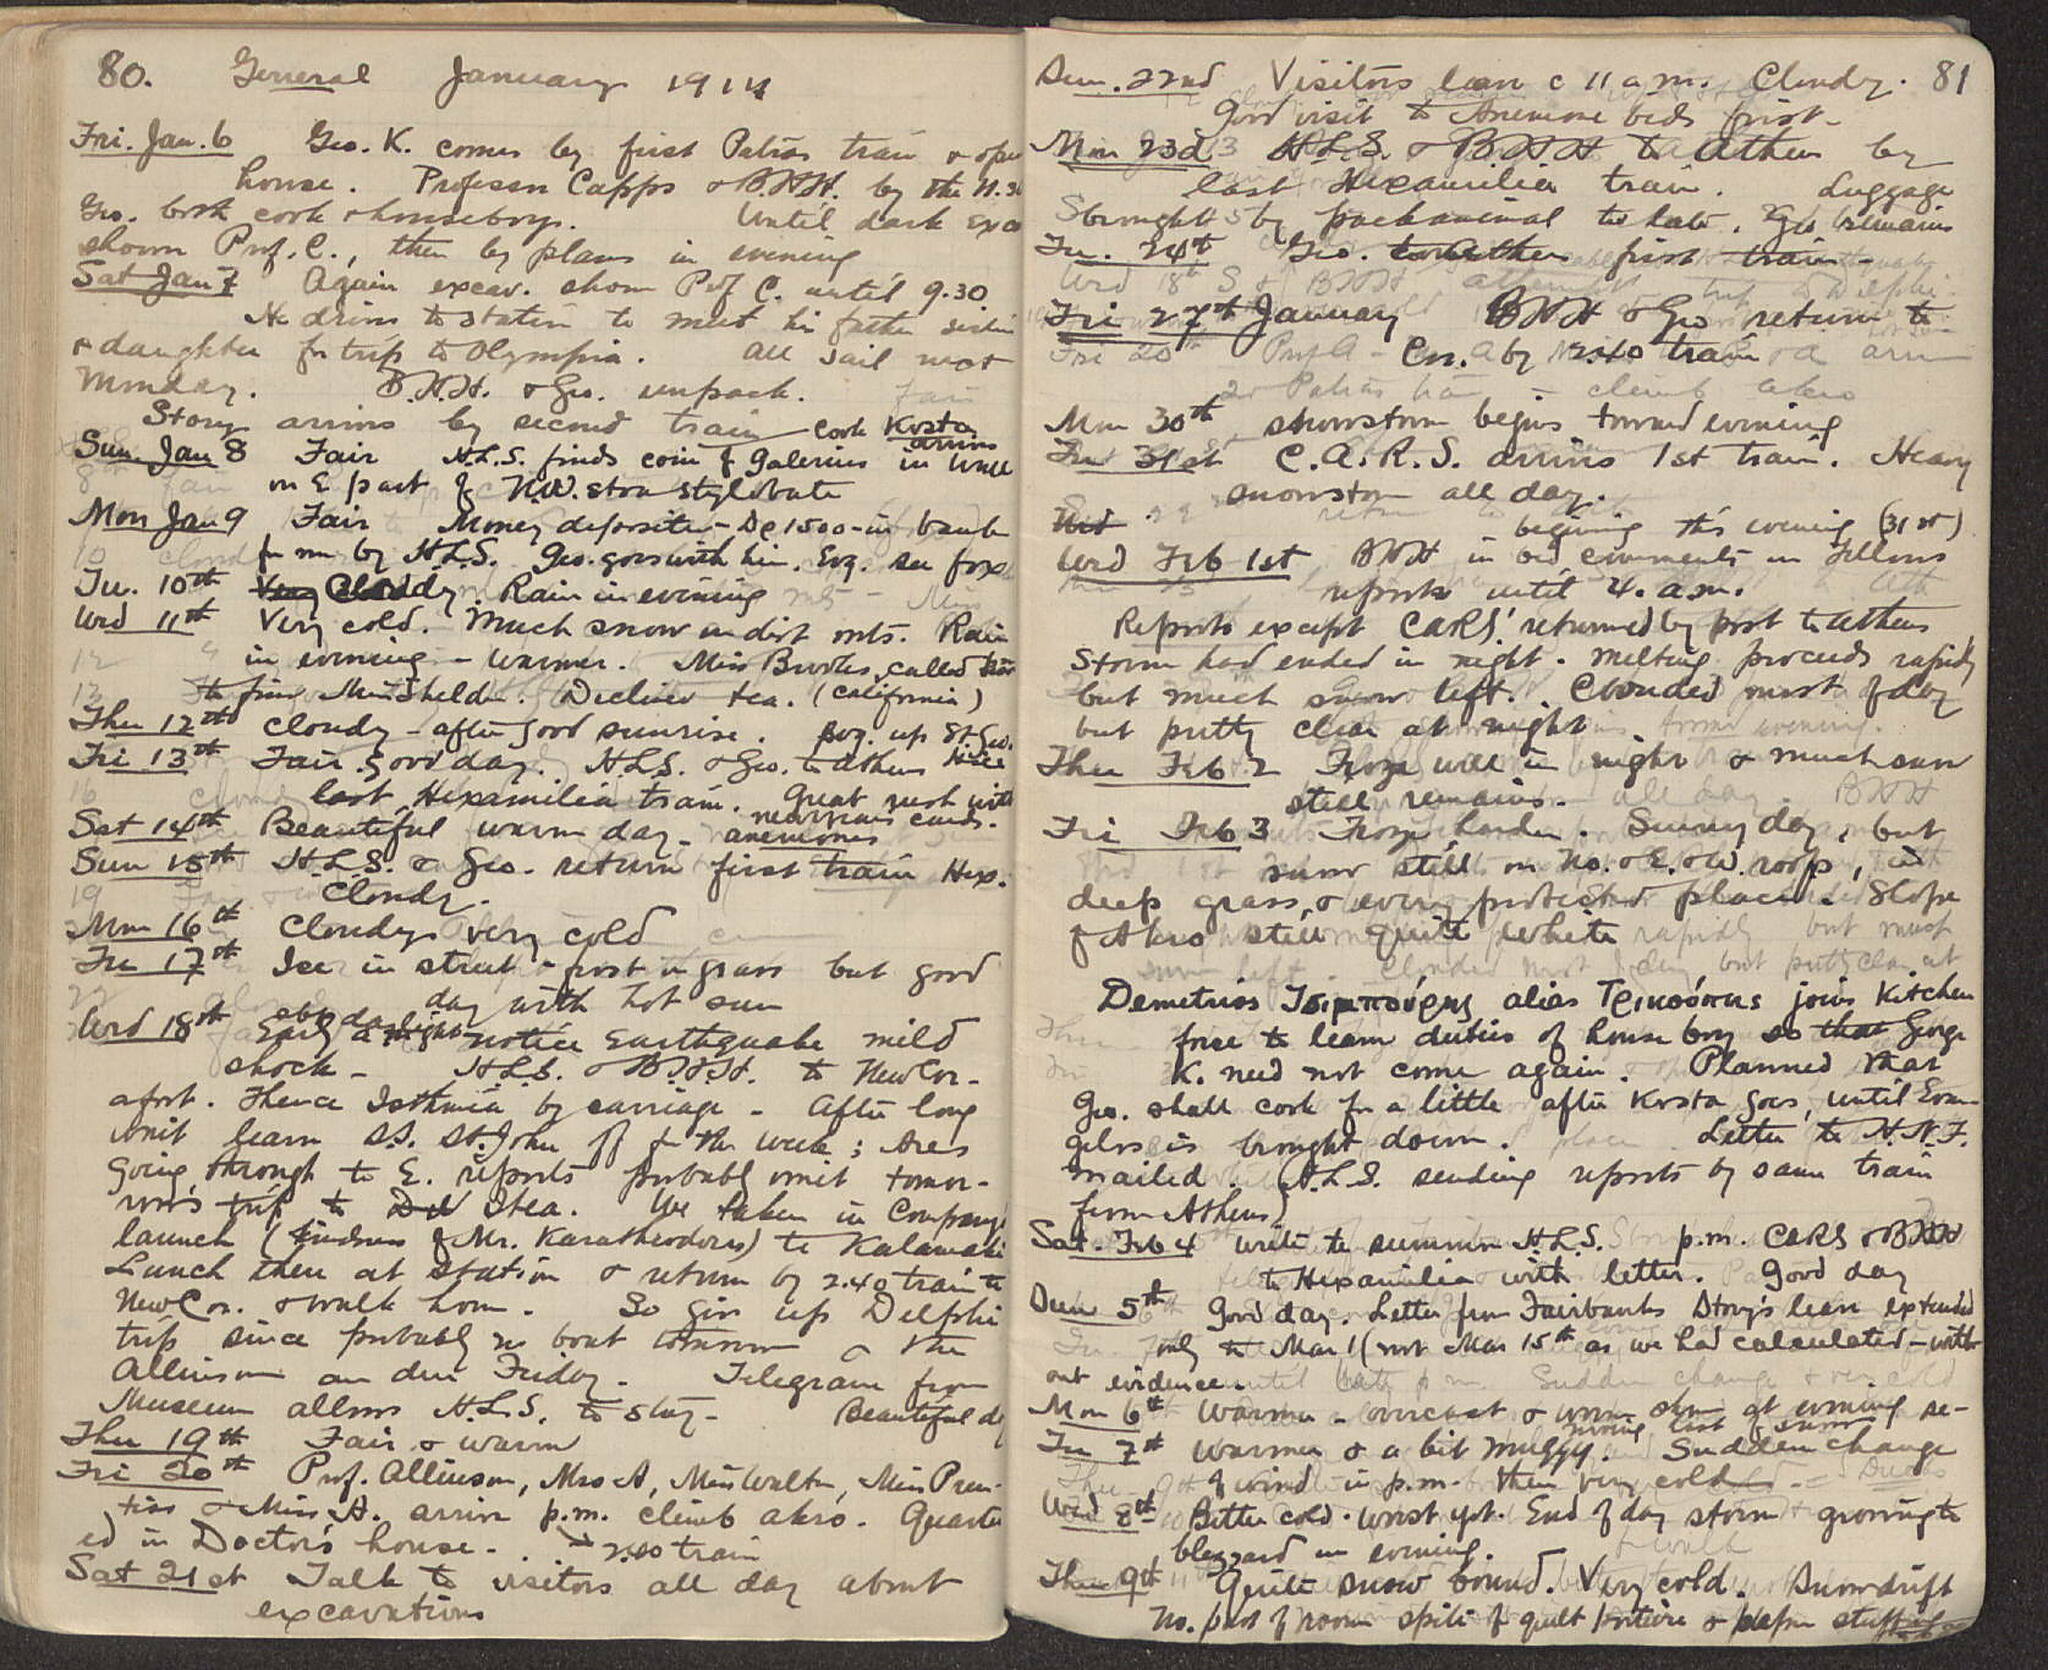 80. General January 1911
Fri. Jan. 6 Geo. K. comes by first Patras train & opens
house. Professor Capps & B.H.H. by the
Geo. both cook & houseboys. Until dark exca
shown Prof. C., then by plans in evening
Sat Jan 7 Again excav. shown Prof C. until 9.30
He drives to station to meet his father sister
& daughter for trip to Olympia. All sail next
Monday. B.H.H. & Geo. unpack.
Story arrives by second train - cook Kosta
arrives
Sun. Jan 8 Fair H.L.S. finds coin of Galerius in wall
on E part of N.W. stoa stylobate
Mon Jan 9 Fair Money deposited - De 1500 - in bank
for me by H.L.S. Geo. goes with him. Evg. see fox
Tu. 10th Very Cloudy. Rain in evening
Wed 11th Very cold. Much snow on dist mts. Rain
in evening - warmer. Miss Brooks called
Miss Sheldon. Declined tea. (California)
Thu 12th Cloudy - after good sunrise. up St Geo.
Hill
Fri 13th Fair good day. H.L.S. & Geo. to Athens
last Hexamilia train. Great rush with
new years cards.
Sat 14th Beautiful warm day - anemones
Sun 15th H.L.S. & Geo. return first train Hex.
Cloudy.
Mon 16th Cloudy very cold
Tu 17th Ice in street & frost on grass but good
day with hot sun
Wed 18th Early a notice Earthquake mild
shock - H.L.S. & B.H.H. to New Cor-
afoot. Thence Isthmia by carriage - After long
wait learn S.S. St. John off for the week; Ares
going through to E. reports probably omit tomor-
row's trip to Del Itea. We taken in Company's
launch (kindness of Mr. Karatheodores) to Kalamaki
Lunch there at station & return by 2.40 train to
New Cor. & walk home. So give up Delphi
trip since probably no boat tomorrow & the
Allinsons are due Friday. Telegram from
Museum allows H.L.S. to stay - Beautiful day
Thu 19th Fair & warm
Fri 20th Prof. Allinson, Mrs A, Miss Walton, Miss Pren-
tiss & Miss H. arrive p.m. climb akro. Quarter
ed in Doctor's house. 2.40 train
Sat 21st Talk to visitors all day about
excavations
Sun. 22nd Visitors leave c 11 a.m. Cloudy. 81
Good visit to Anemone beds first -
Mon 23d H.L.S. & B.H.H. to Athens by
last Hexamilia train. Luggage
brought by pack animal too late. Geo remains
Tu. 24th Geo. to Athens first train -
Fri 27th January BHH & Geo return to
Cor. by 2.40 train
Mon 30th snowstorm begins toward evening
Tu 31st C.A.R.S. arrives 1st train. Heavy
snowstorm all day.
Wed begining this evening (31st)
Wed Feb 1st BHH in bed comments on Fellows
reports until 4. a.m.
Reports except CARS' returned by post to Athens
Storm had ended in night. Melting proceeds rapidly
but much snow left. Clouded most of day
but pretty clear at night
Thu Feb 2 Froze well in night & much snow
still remains.
Fri Feb 3 Froze harder. Sunny day, but
snow still on No. & E. & W. roofs, in
deep grass, & every protected place. Slope
of Akro still quite white
Demetrios Τσιμπούρης alias Τρικούπης joins Kitchen
force to learn duties of house boy so that George
K. need not come again. Planned that
Geo. shall cook for a little after Kosta goes, until Evan-
gelos is brought down. Letter to H.N.F.
mailed. (H.L.S. sending reports by same train
from Athens)
Sat. Feb 4 write to summon H.L.S. p.m. CARS & BHH
to Hexamilia with letter. Good day
Sun 5th Good day. Letter from Fairbanks Story's leave extended
only to Mar 1 (not Mar 15th as we had calculated - with-
out evidence.
Mon 6th Warmer - overcast & warm at evening re-
moving last of snow
Tu 7th Warmer & a bit muggy. Sudden change
of wind in p.m. then very cold -
Wed 8th Bitter cold. Worst yet. End of day storm growing to
blizzard in evening.
Thu 9th Quite snow bound. Very cold. Snowdrift
No. part of room spite of quilt portiere & paper stuffing